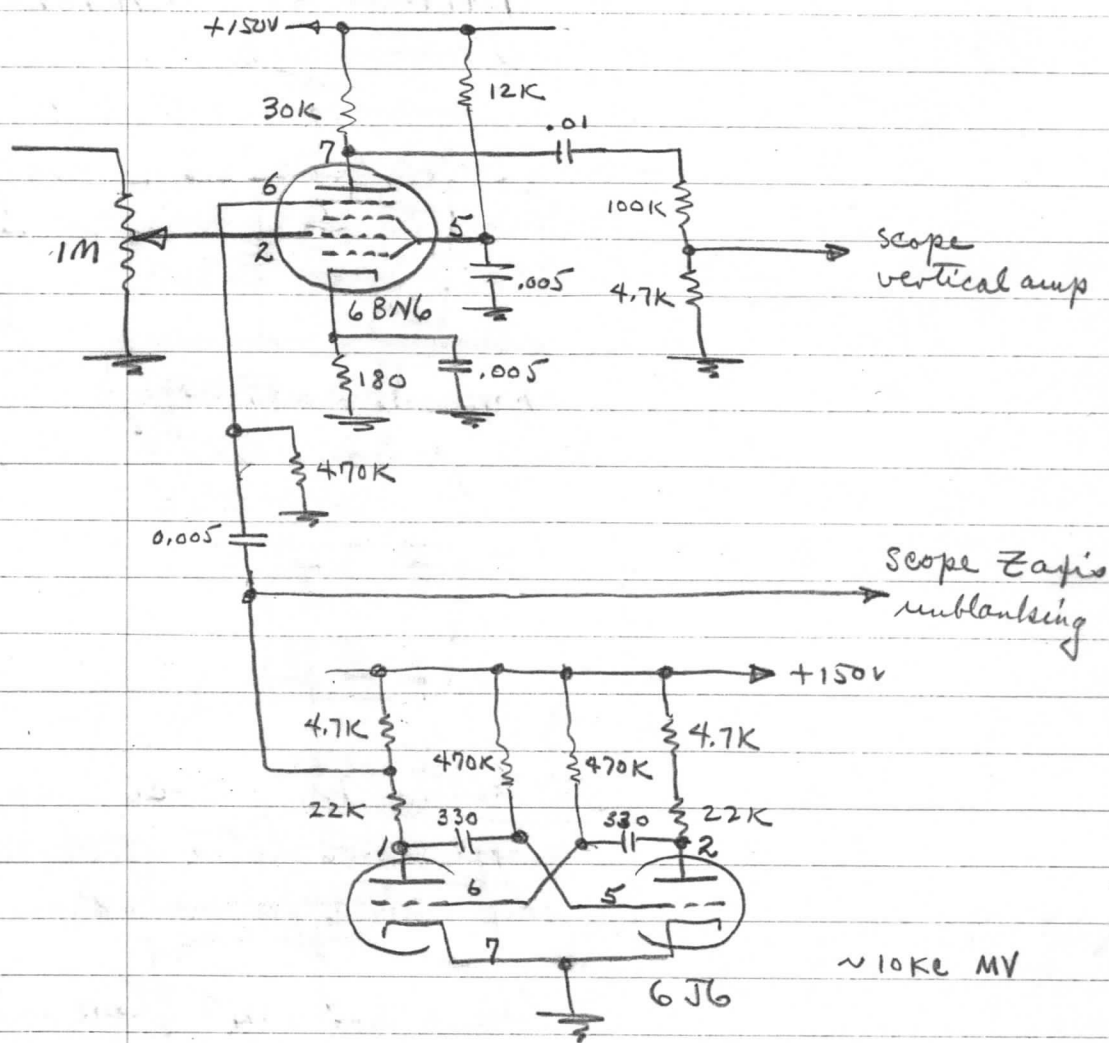 +150V
12K
30K
.01
7
6
100K
5
scope
vertical amp
1M
2
.005
4.7K
6BN6
180
.005
470K
0.005
Scope Z axis
unblanking
+150V
4.7K
4.7K
470K
470K
22K
330
330
22K
1
2
6
5
7
~10KC MV
6J6